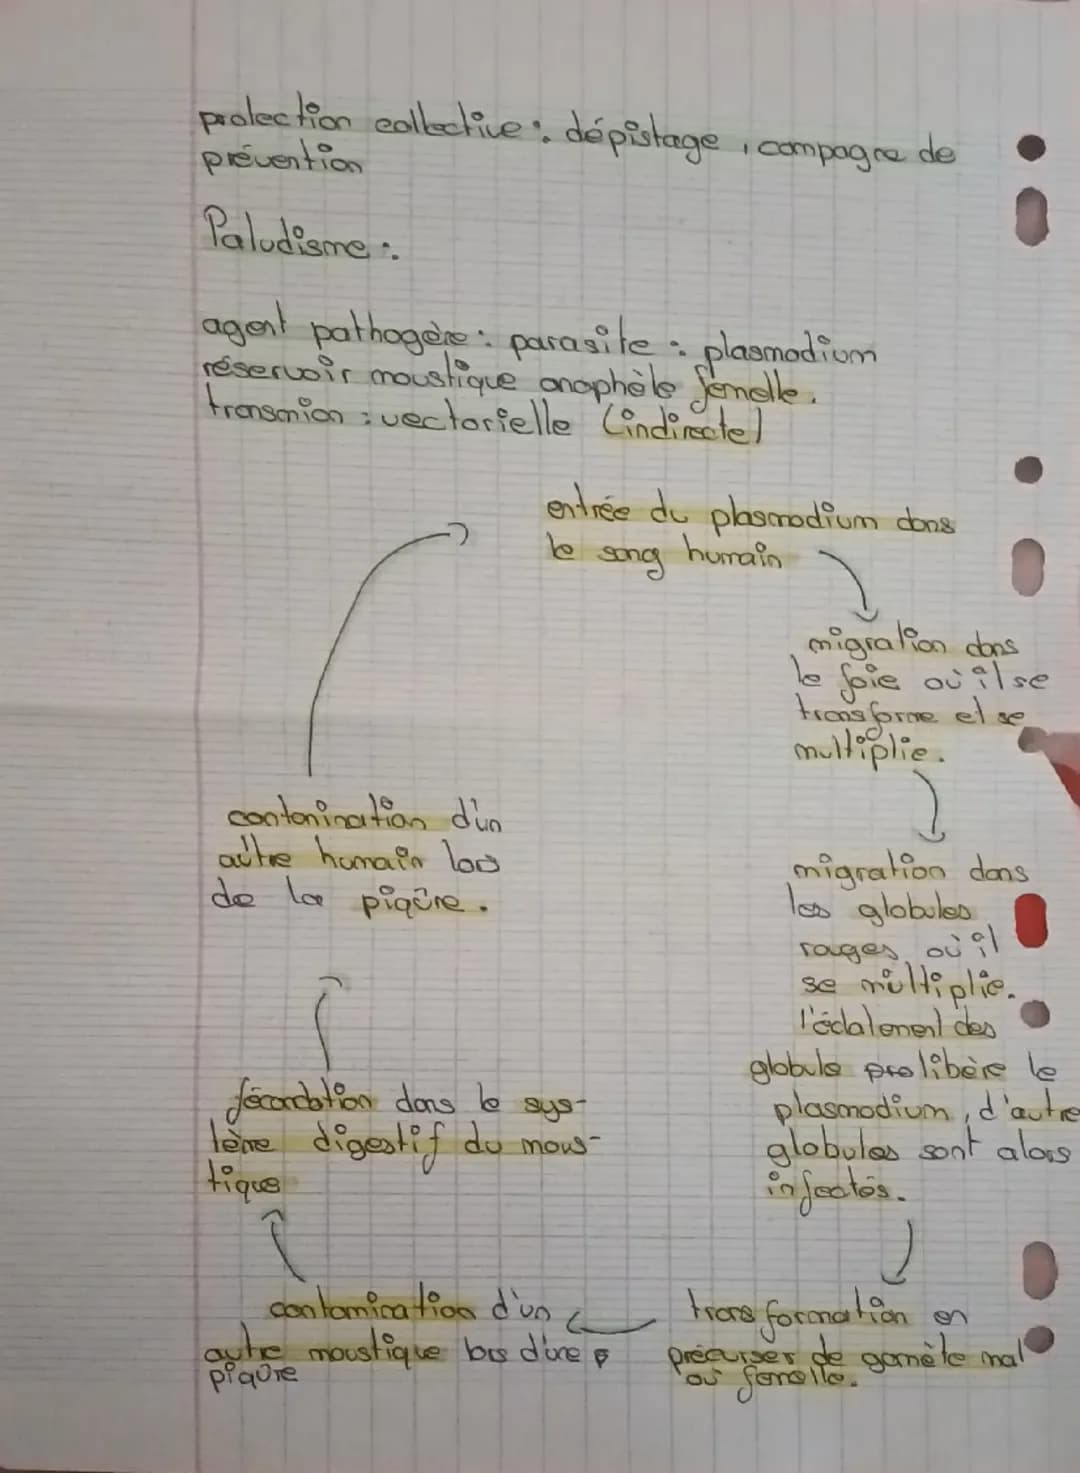 prolection collective : dépistage, compagne de
prévention
Paludisme :
agent pathogène : parasite : plasmodium
réservoir moustique anophèle femelle.
transmion : vectorielle (indirecte)
entrée du plasmodium dans
le sang humain
migration dans
le foie où il se
transforme et se
multiplie.
migration dans
les globules
rouges où il
se multiplie.
l'éclatement des
globule libère le
plasmodium, d'autre
globules sont alors
infectés.
transformation en
précurser de gamète mal
ou femelle.
contamination d'un
autre moustique lors d'une
piqûre
fécondation dans le sys-
tème digestif du mous-
tique
contamination d'un
autre humain lors
de la piqûre.